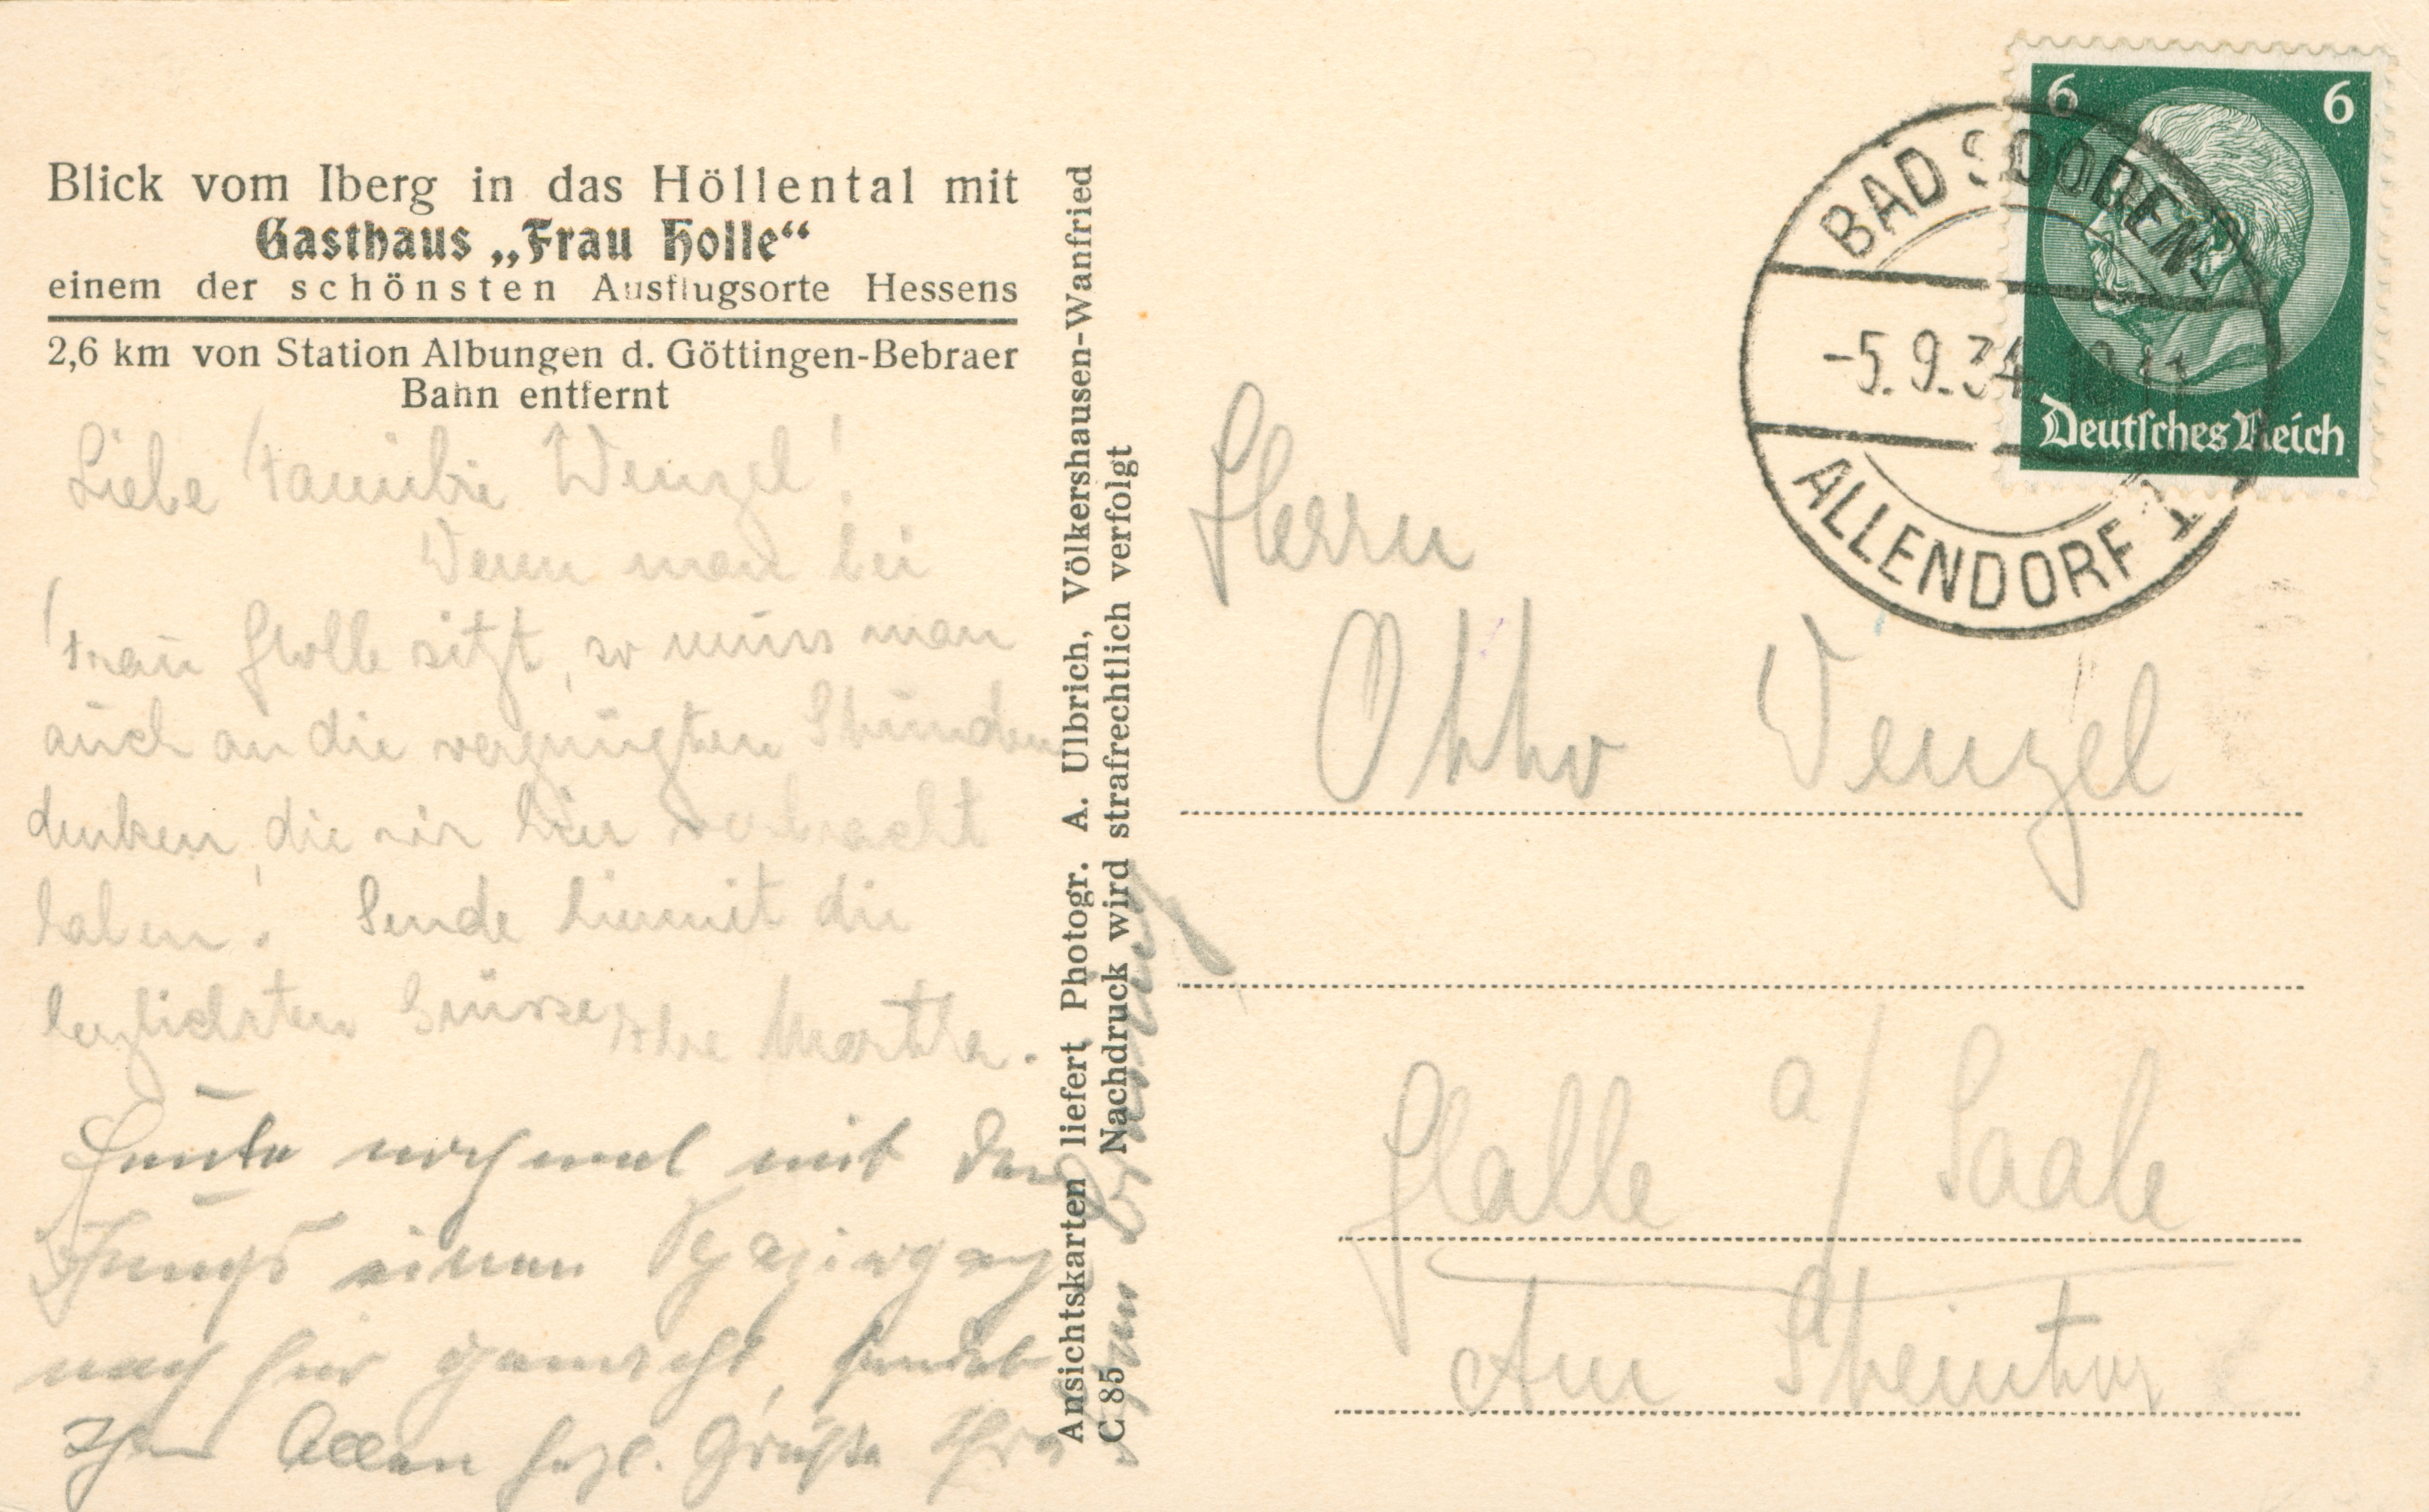 Blick vom Iberg in das Höllental mit
Gasthaus „Frau Holle“
einem der schönsten Ausflugsorte Hessens
2,6 km von Station Albungen d. Göttingen-Bebraer
Bahn entfernt
Liebe Familie Wenzel!
Wenn man bei
Frau Holle sitzt, so muss man
auch an die vergnügten Stunden
denken, die wir hier verbracht
haben. Sende hiermit die
herzlichsten Grüsse Ihre Martha.
Heute nochmal mit den
Jungs einen Spaziergang
nach hier gemacht, sendet
Ihnen Allen herzl. Grüße Ihre
Ansichtskarten liefert Photogr. A. Ulbrich, Völkershausen-Wanfried
C 85 Nachdruck wird strafrechtlich verfolgt
6 6
Deutsches Reich
BAD SOODEN-
-5.9.34
ALLENDORF 1
Herrn
Otto Wenzel
Halle a/ Saale
Am Steintor